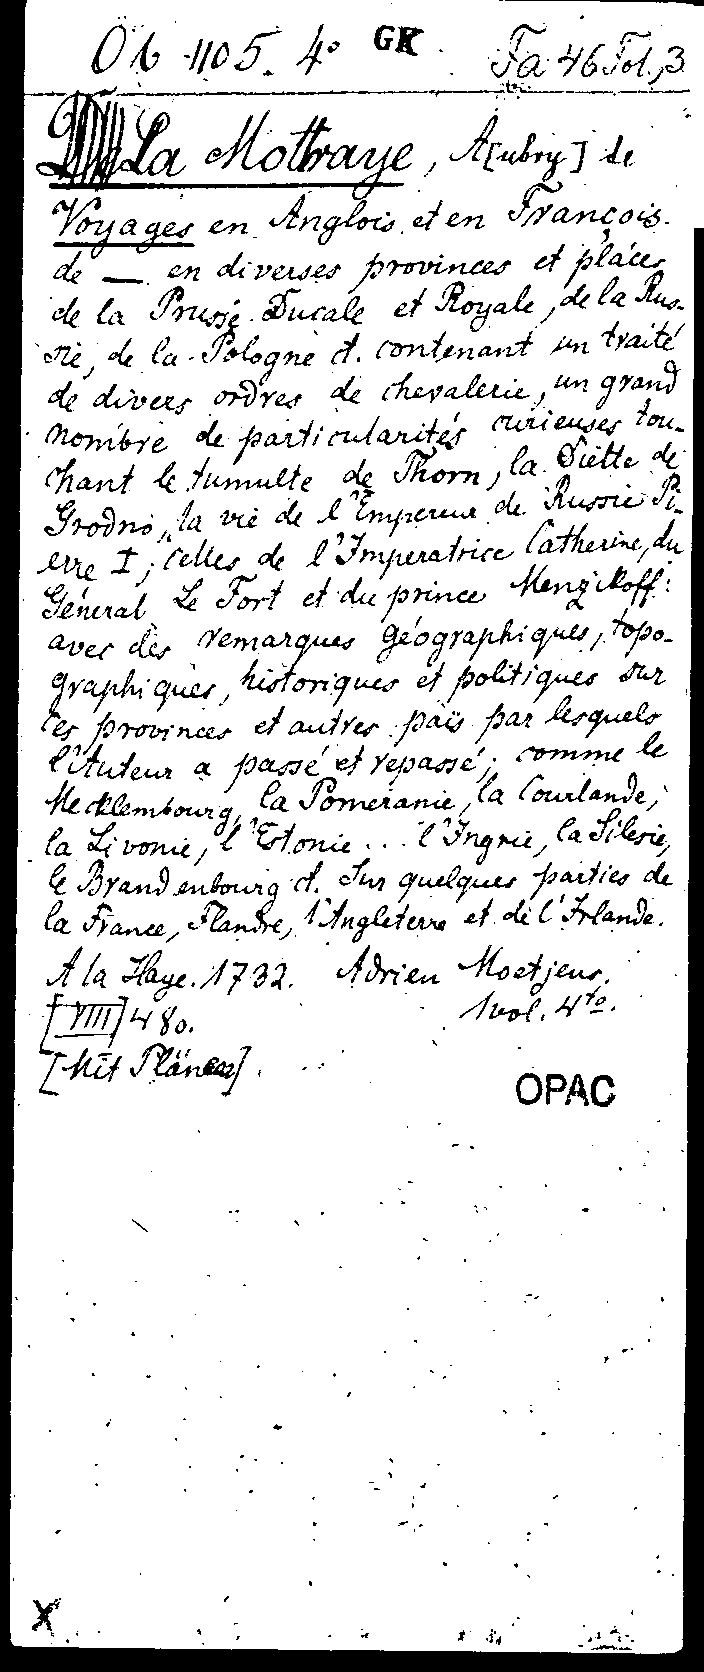 Ob 1105. 4° GK Fa 46 Fol., 3
La Mottraye, A[ubry] de
Voyages en Anglois et en François.
de — en diverses provinces et places
de la Prusse Ducale et Royale, de la Rus-
sie, de la Pologne ct. contenant un traité
de divers ordres de chevalerie, un grand
nombre de particularités curieuses tou-
chant le tumulte de Thorn, la Diette de
Grodno, la vie de l'Empereur de Russie Pi-
erre I; celles de l'Imperatrice Catherine, du
Géneral Le Fort et du prince Menzikoff:
avec des remarques géographiques, topo-
graphiques, historiques et politiques sur
ces provinces et autres païs par lesquels
l'Auteur a passé et repassé; comme le
Mecklembourg, la Pomeranie, la Courlande,
la Livonie, l'Estonie ... l'Ingrie, la Silesie,
le Brandenbourg ct. Sur quelques parties de
la France, Flandre, l'Angleterre et de l'Irlande.
A la Haye. 1732. Adrien Moetjens.
[VIII] 480. 1 vol. 4to.
[Mit Plänen].
OPAC
X